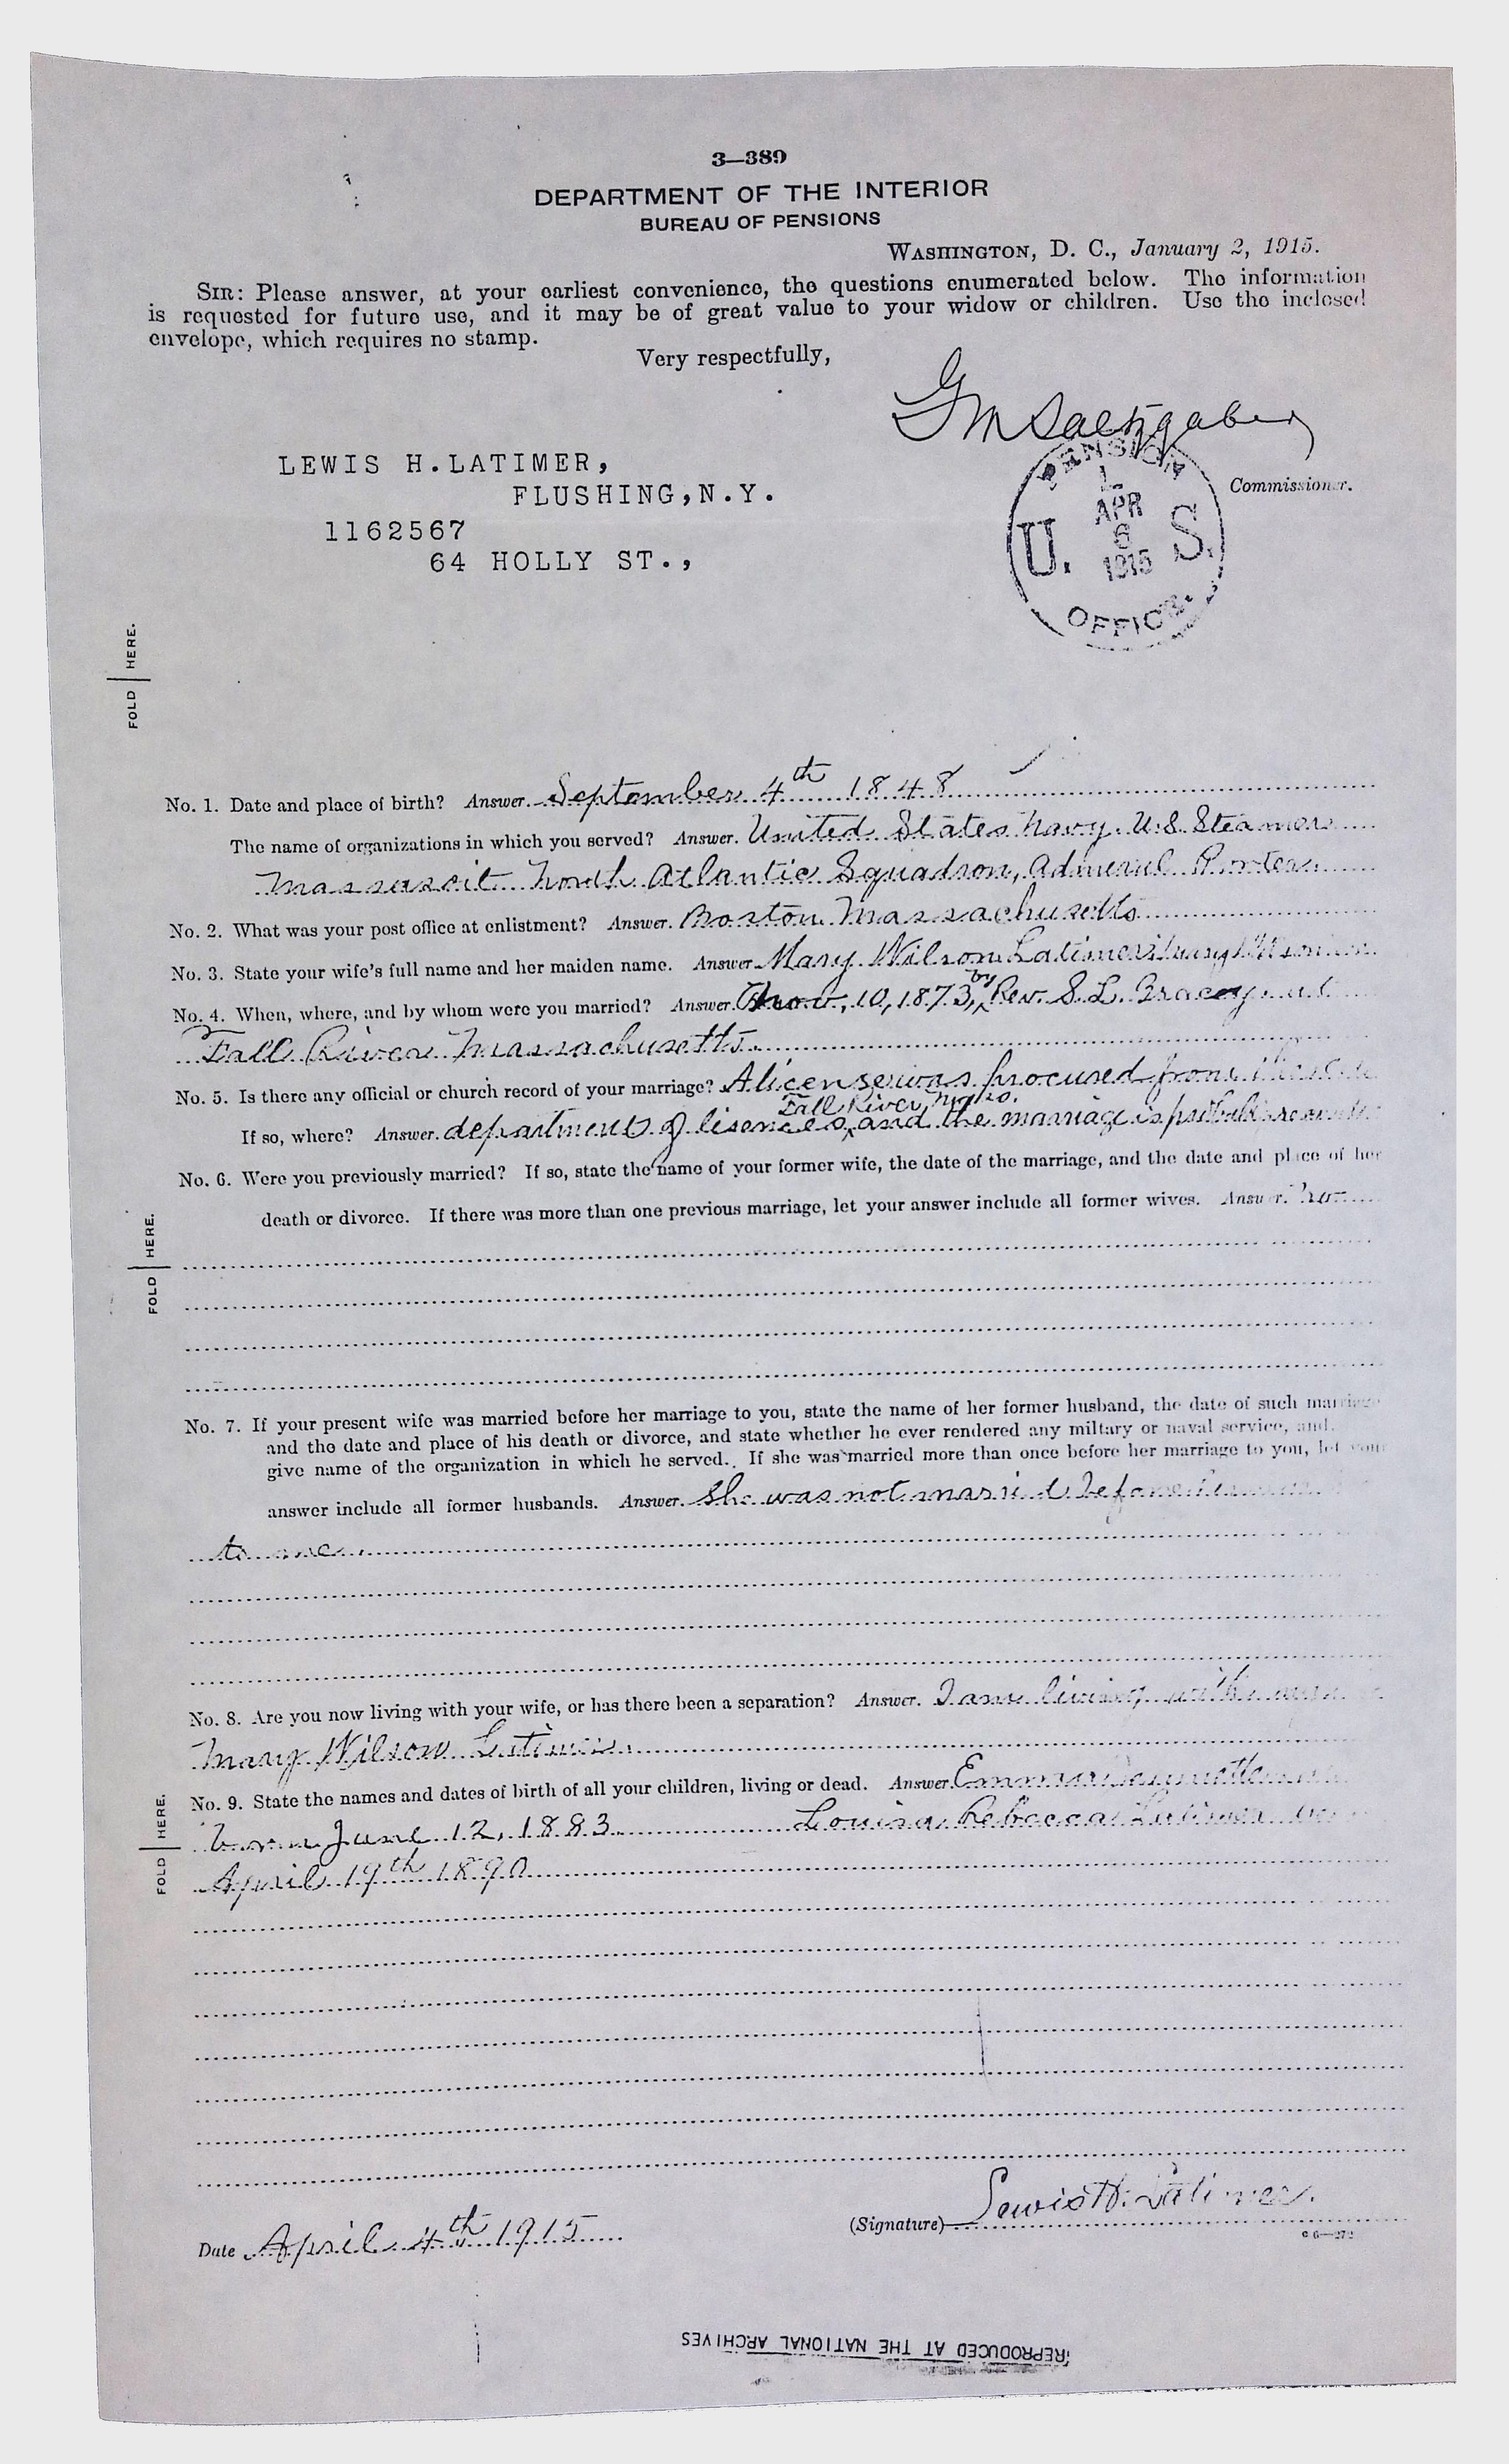 3—389
DEPARTMENT OF THE INTERIOR
BUREAU OF PENSIONS
WASHINGTON, D. C., January 2, 1915.
SIR: Please answer, at your earliest convenience, the questions enumerated below. The information
is requested for future use, and it may be of great value to your widow or children. Use the inclosed
envelope, which requires no stamp.
Very respectfully,
G M Saltzgaber
Commissioner.
LEWIS H. LATIMER,
FLUSHING, N.Y.
1162567
64 HOLLY ST.,
PENSION
L
APR
U. 6 S.
1915
OFFICE.
FOLD HERE.
No. 1. Date and place of birth? Answer. September 4th 1848
The name of organizations in which you served? Answer. United States Navy. U.S. Steamer
Massasoit North Atlantic Squadron, Admeral Porter
No. 2. What was your post office at enlistment? Answer. Boston Massachusetts
No. 3. State your wife's full name and her maiden name. Answer. Mary Wilson Latimer
No. 4. When, where, and by whom were you married? Answer. Nov, 10, 1873, by Rev. S. L. Gracey at
Fall River Massachusetts.
No. 5. Is there any official or church record of your marriage? A license was procured from the
Fall River, Mass.
If so, where? Answer. department of lisences, and the marriage is
No. 6. Were you previously married? If so, state the name of your former wife, the date of the marriage, and the date and place of her
death or divorce. If there was more than one previous marriage, let your answer include all former wives. Answer. No
FOLD HERE.
No. 7. If your present wife was married before her marriage to you, state the name of her former husband, the date of such marriage
and the date and place of his death or divorce, and state whether he ever rendered any miltary or naval service, and
give name of the organization in which he served. If she was married more than once before her marriage to you, let your
answer include all former husbands. Answer. She was not married before
to me
No. 8. Are you now living with your wife, or has there been a separation? Answer. I am living with my
Mary Wilson Latimer.
No. 9. State the names and dates of birth of all your children, living or dead. Answer. Emma
born June 12, 1883 Louisa Rebecca Latimer
April 19th 1890
FOLD HERE.
Date April 4th 1915
(Signature) Lewis H. Latimer.
REPRODUCED AT THE NATIONAL ARCHIVES